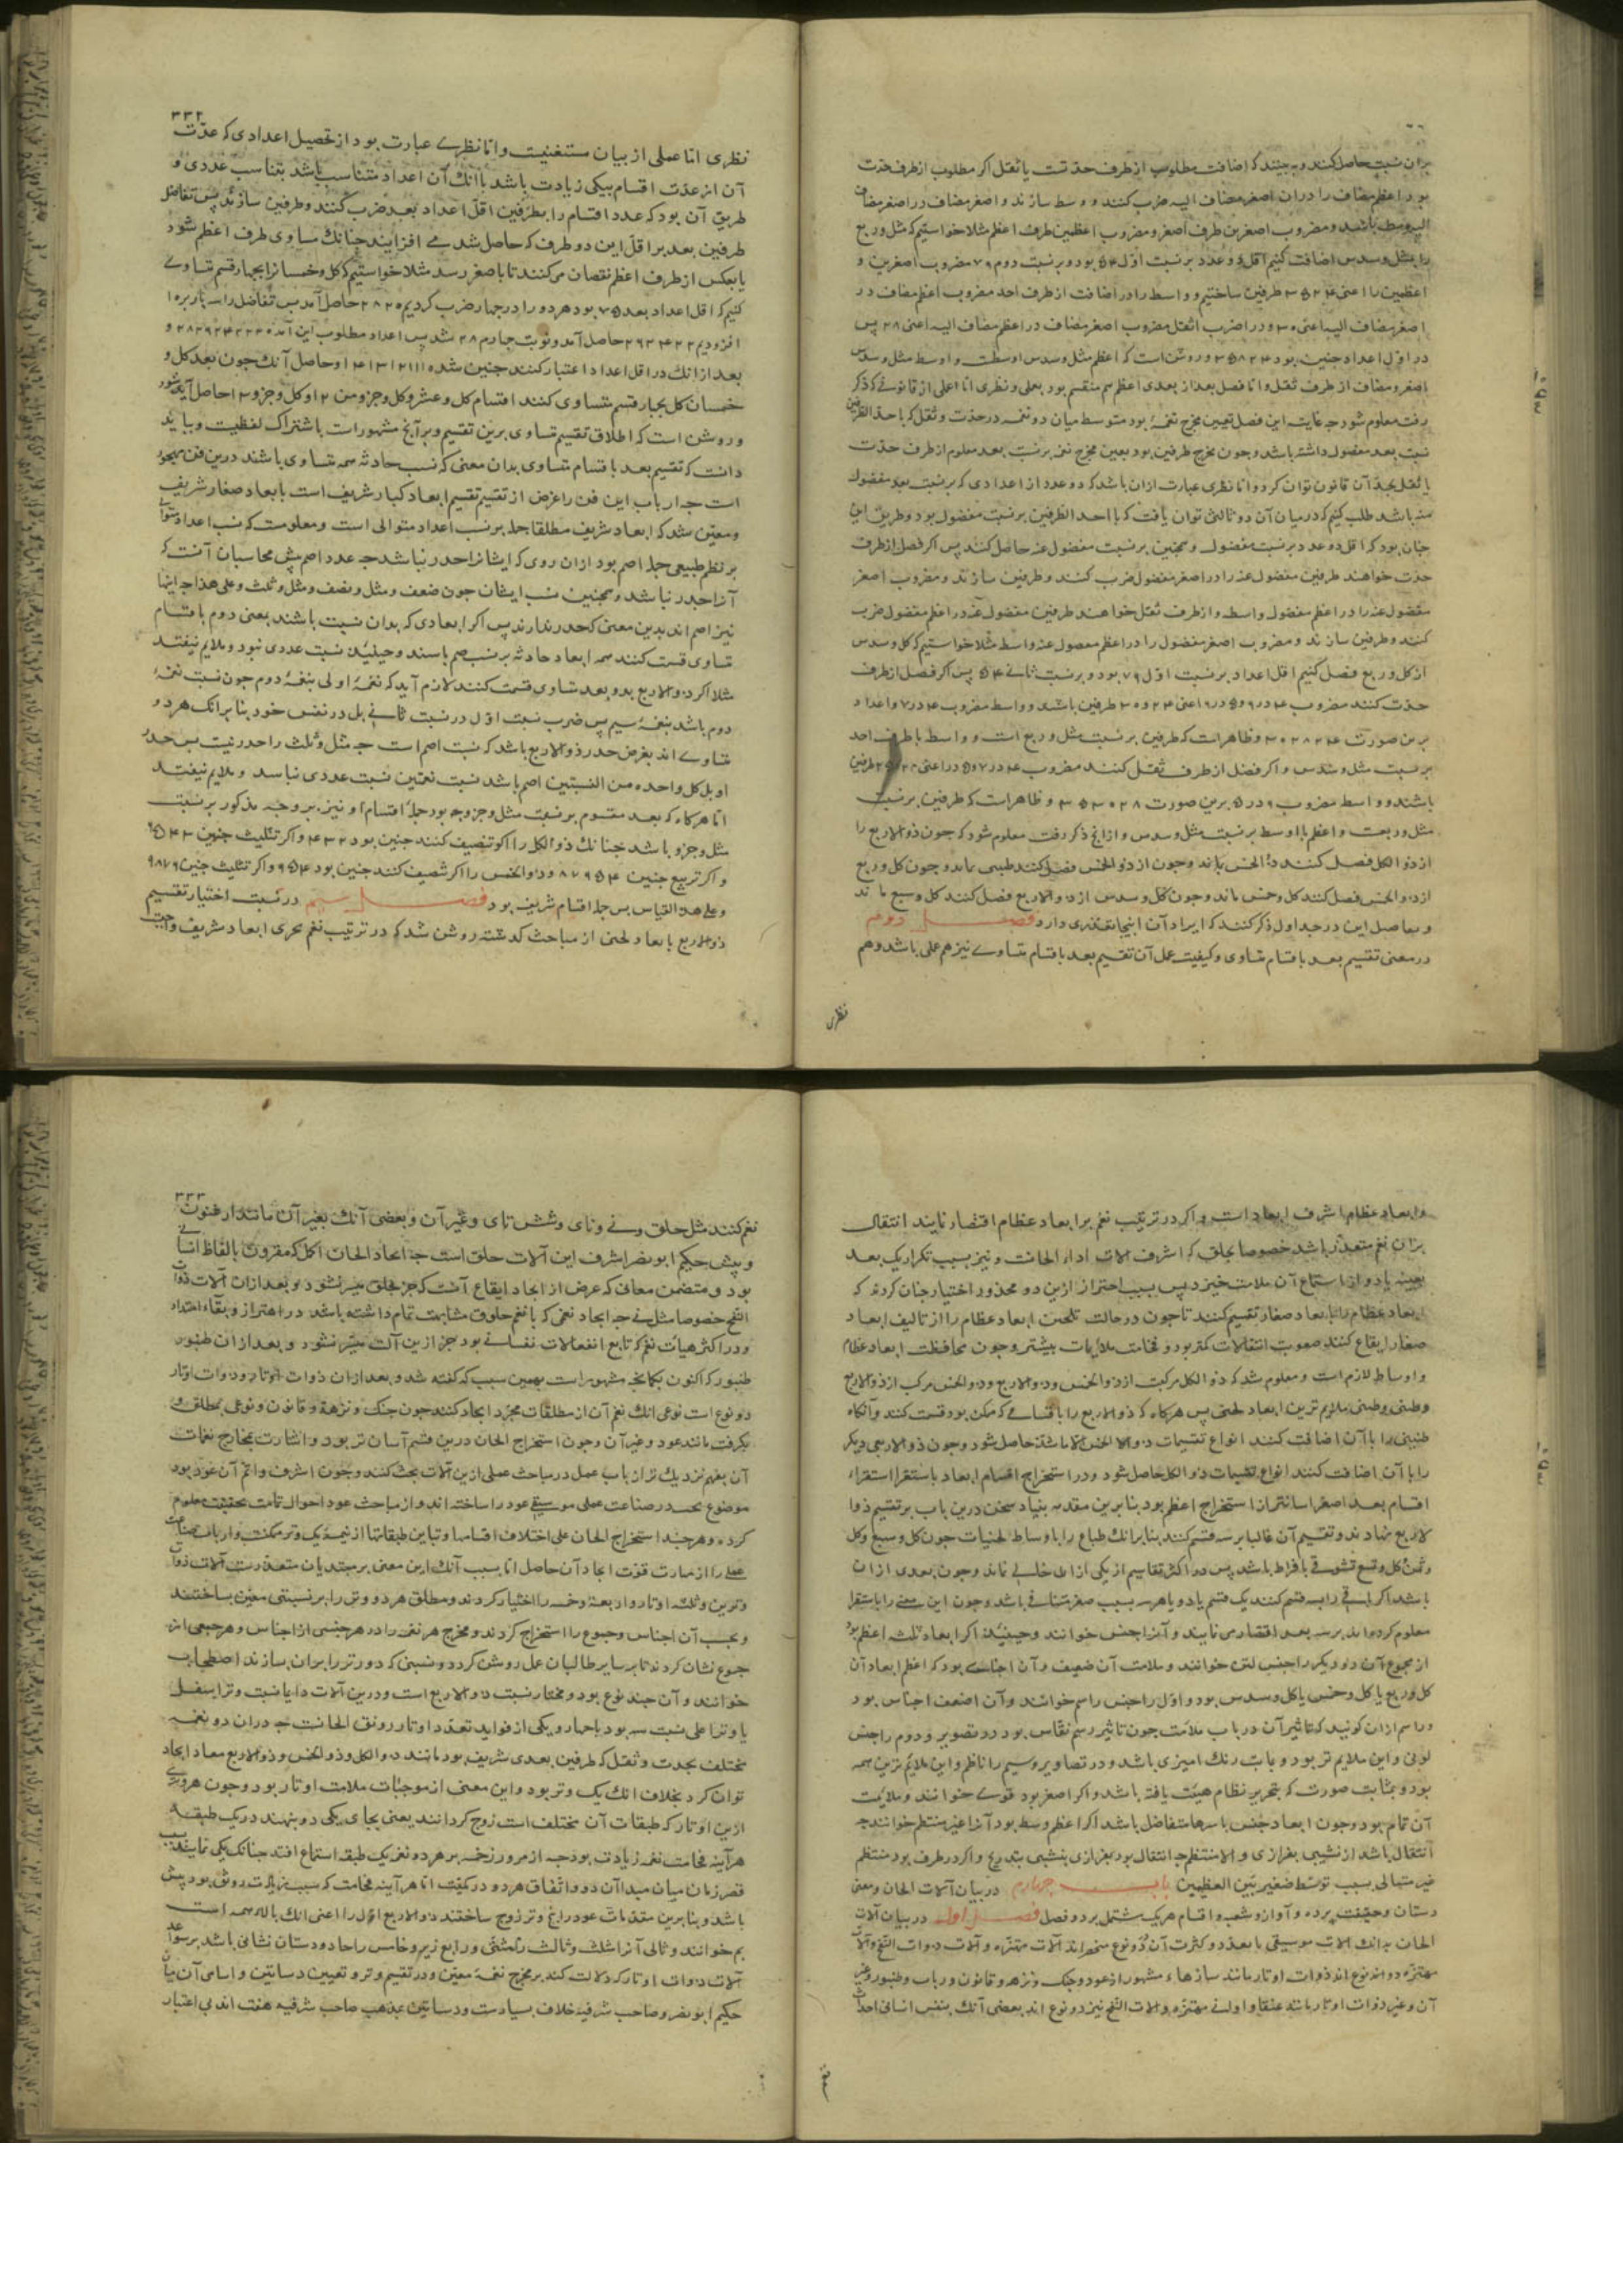 بران نسبت حاصل کنند و به بینند که اضافت مطلوب از طرف حدتست یا ثقل اکر مطلوب از طرف حدت
بود اعظم مضاف را در ان اصغر مضاف الیه ضرب کنند و وسط سازند و اصغر مضاف در اصغر مضاف
الیه وسط باشد و مضروب اصغرین طرف اصغر و مضروب اعظمین طرف اعظم مثلا خواستیم که مثل و ربع
را بمثل و سدس اضافت کنیم اقل دو عدد بر نسبت اول ۵۴ بود و بر نسبت دوم ۷۶ مضروب اصغرین و
اعظمین را اعنی طرفین ساختیم و واسط را در اضافت از طرف احد مضروب اعظم مضاف در
اصغر مضاف الیه اعنی ۳۰ و در اضرب اثقل مضروب اصغر مضاف در اعظم مضاف الیه اعنی ۲۸ پس
در اول اعداد چنین بود و روشن است که اعظم مثل و سدس اوسطست و اوسط مثل و سدس
اصغر و مضاف از طرف ثقل و اما فصل بعد از بعدی اعظم هم منقسم بود بعملی و نظری اما عملی از قانونی که ذکر
رفت معلوم شود چه غایت این فصل تعیین مخرج نغمهٔ بود متوسط میان دو نغمه در حدت و ثقل که با احد الطرفین
نسبت بعد مفضول داشته باشد و چون مخرج طرفین بود بعین مخرج نغمه بر نسبت بعد معلوم از طرف حدت
یا ثقل بحد آن قانون توان کرد و اما نظری عبارت ازان باشد که دو عدد از اعدادی که بر نسبت بعد مفضول
منه باشد طلب کنیم که در میان آن دو ثالثی توان یافت که با احد الطرفین بر نسبت مفضول بود و طریق این
چنان بود که اقل دو عدد بر نسبت مفضول و همچنین بر نسبت مفضول عنه حاصل کنند پس اکر فصل از طرف
حدت خواهند طرفین مفضول عنه را در اصغر مفضول ضرب کنند و طرفین سازند و مضروب اصغر
مفضول عنه را در اعظم مفضول واسط و از طرف ثقل خواهند طرفین مفضول عنه در اعظم مفضول ضرب
کنند و طرفین سازند و مضروب اصغر مفضول را در اعظم مفصول عنه واسط مثلا خواستیم که کل و سدس
از کل و ربع فصل کنیم اقل اعداد بر نسبت اول ۷۶ بود و بر نسبت ثانی ۵۴ پس اکر فصل از طرف
حدت کنند مضروب طرفین باشدی و واسط مضروب ۴ در ۷ و اعداد
برین صورت و ظاهرات که طرفین بر نسبت مثل و ربع است و واسط با طرف احد
بر نسبت مثل و سدس و اکر فصل از طرف ثقل کنند مضروب طرفین
باشند و واسط مضروب ۶ در ۵ برین صورت و ظاهرات که طرفین بر نسبت
مثل و ربعست و اعظم با اوسط بر نسبت مثل و سدس و ازانچ ذکر رفت معلوم شود که چون ذو الاربع را
از ذو الکل فصل کنند ذو الخمس یابند و چون از ذو الخمس فصل کنند طنینی ماند و چون کل و ربع
از ذو الخمس فصل کنند کل و خمس ماند و چون کل و سدس از ذو الاربع فصل کنند کل و سبع ماند
و بحاصل این در جداول ذکر کنند که ایراد آن اینجا تعذری دارد فصل دوم
در معنی تقسیم بعد باقسام متساوی و کیفیت عمل آن تقسیم بعد باقسام متساوی نیز هم عملی باشد و هم
نظری
۳۳۲
نظری اما عملی از بیان مستغنیست و اما نظری عبارت بود از تحصیل اعدادی که عدت
آن از عدت اقسام بیکی زیادت باشد با آنک آن اعداد متناسب باشد بتناسب عددی و
طریق آن بود که عدد اقسام را بطرفین اقل اعداد بعد ضرب کنند و طرفین سازند پس تفاضل
طرفین بعد بر اقل این دو طرف که حاصل شد می افزایند چنانک مساوی طرف اعظم شود
یا بعکس از طرف اعظم نقصان می کنند تا باصغر رسد مثلا خواستیم که کل و خمسا نرا بچهار قسم متساوی
کنیم که اقل اعداد بعد ۷۵ بود هر دو را در چهار ضرب کردیم ۲۸۲۰ حاصل آمد پس تفاضل را سه بار بر۰ا
افزودیم حاصل آمد و نوبت چهارم ۲۸ شد پس اعداد مطلوب این آمد و
بعد ازانک در اقل اعداد اعتبار کنند چنین شد و حاصل آنک چون بعد کل و
خمسان کل بچهار قسم متساوی کنند اقسام کل و عشر و کل و جزو من
و روشن است که اطلاق تقسیم تساوی برین تقسیم و بر آنچ مشهورات باشتراک لفظیت و بباید
دانست که تقسیم بعد باقسام متساوی بدان معنی که نسب حادثه همه متساوی باشند درین فن مهجور
است چه ارباب این فن را غرض از تقسیم تقسیم ابعاد کبار شریف است بابعاد صغار شریف
و معین شد که ابعاد شریف مطلقا جمله بر نسب اعداد متوالی است و معلومست که نسب اعداد متوالی
بر نظم طبیعی جمله اصم بود ازان روی که ایشانرا جذر نباشد چه عدد اصم پیش محاسبان آنست که
آنرا جذر نباشد و همچنین نسب ایشان چون ضعف و مثل و نصف و مثل و ثلث و علی هذا چه اینها
نیز اصم اند بدین معنی که جذر ندارند پس اکر ابعادی که بدان نسبت باشند بعنی دوم باقسام
متساوی قسمت کنند همه ابعاد حادثه بر نسب صم باسند و حینئذ نسبت عددی نبود و ملایم نیفتد
مثلا اکر ذو الاربع بدو بعد متساوی قسمت کنند لازم آید که نغمهٔ اولی بنغمهٔ دوم چون نسبت نغمهٔ
دوم باشد بنغمهٔ سیم پس ضرب نسبت اول در نسبت ثانی بل در نفس خود بنا برانک هر دو
متساوی اند بفرض جذر ذو الاربع باشد که نسبت اصم است چه مثل و ثلث را جذر نیست پس جذر
او بل کل واحده من النسبتین اصم باشد نسبت نغمتین نسبت عددی نباسد و ملایم نیفتد
اما هرکاه که بعد مقسوم بر نسبت مثل و جزو بود جملهٔ اقسام او نیز بر وجه مذکور بر نسبت
مثل و جزو باشد چنانک ذو الکل را اکر تنصیف کنند چنین بود ۴۳۲ و اکر تثلیث چنین ۶۵۴۳
و اکر تربیع چنین ۸۷۶۵۴ و ذو الخمس را اکر تنصیف کنند چنین بود ۶۵۴ و اکر تثلیث چنین ۹۸۷۶
و علی هذا القیاس پس جمله اقسام شریف بود فصل سیم در نسبت اختیار تقسیم
ذو الاربع بابعاد لحنی از مباحث کذشته روشن شد که در ترتیب نغم تحری ابعاد شریف واجبست
و ابعاد عظام اشرف ابعاد است و اکر در ترتیب نغم بر ابعاد عظام اقتصار نمایند انتقال
بران نغم متعذر باشد خصوصا بحلق که اشرف الات اداء الحانست و نیز بسبب تکرار یک بعد
بعینه یا دو از استماع آن ملامت خیزد پس بسبب احتراز ازین دو محذور اختیار چنان کردند که
ابعاد عظام را بابعاد صغار تقسیم کنند تا چون در حالت تلحین ابعاد عظام را از تالیف ابعاد
صغار ایقاع کنند صعوبت انتقالات کمتر بود و فخامت ملایمات بیشتر و چون محافظت ابعاد عظام
و اوساط لازم است و معلوم شد که ذو الکل مرکبست از ذو الخمس و ذو الاربع و ذو الخمس مرکب از ذو الاربع
و طنینی و طنینی ملایم ترین ابعاد لحنی پس هرکاه که ذو الاربع را باقسامی که ممکن بود قسمت کنند و آنکاه
طنینی را با آن اضافت کنند انواع تقسیمات ذو الخمس حاصل شود و چون ذو الاربعی دیکر
را با آن اضافت کنند انواع تقسیمات ذو الکل حاصل شود و در استخراج اقسام ابعاد باستقرا استقراء
اقسام بعد اصغر اسانتر از استخراج اعظم بود بنا برین مقدمه بنیاد سخن درین باب بر تقسیم ذوا
لاربع نهادند و تقسیم آن غالبا بر سه قسم کنند بنا برانک طباع را باوساط لحنیات چون کل و سبع و کل
و ثمن و کل و تسع تشوقی بافراط باشد پس در اکثر تقاسیم از یکی ازان خالی نماند و چون بعدی ازان
باشد اکر باقی را به قسم کنند یک قسم یا دو یا هر سه بسبب صغر متنافی باشد و چون این معنی را باستقرا
معلوم کردند بر سه بعد اقتصار می نمایند و آنرا جنس خوانند و حینئذ اکر ابعاد ثلثه اعظم بود
از مجموع آن دو دیکر را جنس لین خوانند و ملامت آن ضعیف و آن اجناسی بود که اعظم ابعاد آن
کل و ربع یا کل و خمس یا کل و سدس بود و اول را جنس راسم خوانند و آن اضعف اجناس بود
و راسم ازان کویند که تاثیر آن در باب ملامت چون تاثیر رسم نقاس بود در تصویر و دوم را جنس
لونی و این ملایم تر بود و بابت رنک امیزی باشد در تصاویر و سیم را ناظم و این ملایم ترین همه
بود و بمثابت صورت که بتحریر نظام هیئت یافته باشد و اکر اصغر بود قوی خوانند و ملایمت
آن تمام بود و چون ابعاد جنس باسرها متفاضل باشد اکر اعظم وسط بود آنرا غیر منتظم خوانند چه
انتقال باشد از نشیبی بفرازی و الا منتظم چه انتقال بود بفرازی بنشیبی بتدریج و اکر در طرف بود منتظم
غیر متتالی بسبب توسط صغیر بین العظیمین باب چهارم در بیان آلات الحان و معنی
دستان و حقیقت پرده و آواز و شعب و اقسام هر یک مشتمل بر دو فصل فصل اول در بیان آلات
الحان بدانک الات موسیقی با تعدد و کثرت آن در دو نوع منحصراند آلات مهتزه و آلات ذوات النفخ و آلات
مهتزه دو اند نوع اند ذوات اوتار مانند سازهاء مشهور از عود و چنک و نزهه و قانون و رباب و طنبور و غیر
آن و غیر ذوات اوتار مانند عنقا و اوانی مهتزه و الات النفخ نیز دو نوع اند بعضی آنک بنفس انسانی احداث
نغم
۳۳۳
نغم کنند مثل حلق و نی و نای و شش تای و غیر آن و بعضی آنک بغیر آن مانند ارغنون
و پیش حکیم ابو نصر اشرف این آلات حلق است چه ایجاد الحان اکمل که مقرون بالفاظ انسانی
بود و متضمن معانی که غرض از ایجاد ایقاع آنست که جز بحلق میسر نشود و بعد ازان آلات ذوات
النفخ خصوصا مثل نی چه ایجاد نغمی که با نغم حلوق مشابهت تمام داشته باشد در اهتزاز و بقاء امتداد
و در اکثر هیأت نغم که تابع انفعالات نفسانی بود جز ازین آلت میسر نشود و بعد ازان طنبور
طنبور که اکنون بکمانچه مشهورست بهمین سبب که کفته شد و بعد ازان ذوات اوتار و ذوات اوتار
دو نوع است نوعی انک نغم آن از مطلقات مجرد ایجاد کنند چون چنک و نزهه و قانون و نوعی بمطلق و
بکرفت مانند عود و غیر آن و چون استخراج الحان درین قسم آسان تر بود و اشارت بمخارج نغمات
آن بفهم نزدیک تر ارباب عمل در مباحث عملی ازین آلات بحث کنند و چون اشرف و اتم آن عود بود
موضوع بحث در صناعت عملی موسیقی عود را ساخته اند و از مباحث عود احوال تمامت بحقیقت معلوم
کرده و هر چند استخراج الحان علی اختلاف اقسامها و تباین طبقاتها از نیمهٔ یک وتر ممکنست و ارباب صناعت
عملی را از مهارت قوت ایجاد آن حاصل اما بسبب آنک این معنی بر مبتدیان متعذرست آلات ذوات
وترین و ثلثه اوتار و اربعهٔ و خمسه را اختیار کردند و مطلق هر دو وتر را بر نسبتی معین بساختند
و بحسب آن اجناس و جموع را استخراج کردند و مخرج هر نغمه را در هر جنسی از اجناس و هر جمعی از
جموع نشان کردند تا بر سایر طالبان عمل روشن کردد و نسبتی که دو وتر را بران سازند اصطحاب
خوانند و آن چند نوع بود و مختار نسبت ذو الاربع است و درین آلات دایما نسبت وترا سفل
یا وترا علی نسبت سه بود با چهار و یکی از فواید تعدد اوتار رونق الحانست چه دران دو نغمه
مختلف بحدت و ثقل که طرفین بعدی شریف بود مانند ذو الکل و ذو الخمس و ذو الاربع معا د ایجاد
توان کرد بخلاف انک یک وتر بود و این معنی از موجبات ملامت اوتار بود و چون هر وتری
ازین اوتار که طبقات آن مختلف است زوج کردانند یعنی بجای یکی دو بنهند در یک طبقه
هر آینه فخامت نغم زیادت بود چه از مرور زخمه بر هر دو نغم یک طبقه استماع افتد چنانک یکی نماید بسبب
قصر زمان میان مبدا آن دو و اتفاق هر دو در کیفیت اما هر آینه فخامت که سبب زیادت رونق بود پیش
باشد و بنا برین مقدمات عود را پنج وتر زوج ساختند ذو الاربع اول را اعنی انک بالاء همه است
بم خوانند و ثانی آنرا مثلث و ثالث را مثنی و رابع زیر و خامس را حاد و دستان نشانی باشد بر سواعد
آلات ذوات اوتار که دلالت کند بر مخرج نغمهٔ معین و در تقسیم وتر و تعیین دساتین و اسامی آن میان
حکیم ابو نصر و صاحب شرفیه خلاف بسیارست و دساتین بمذهب صاحب شرفیه هفت اند بی اعتبار